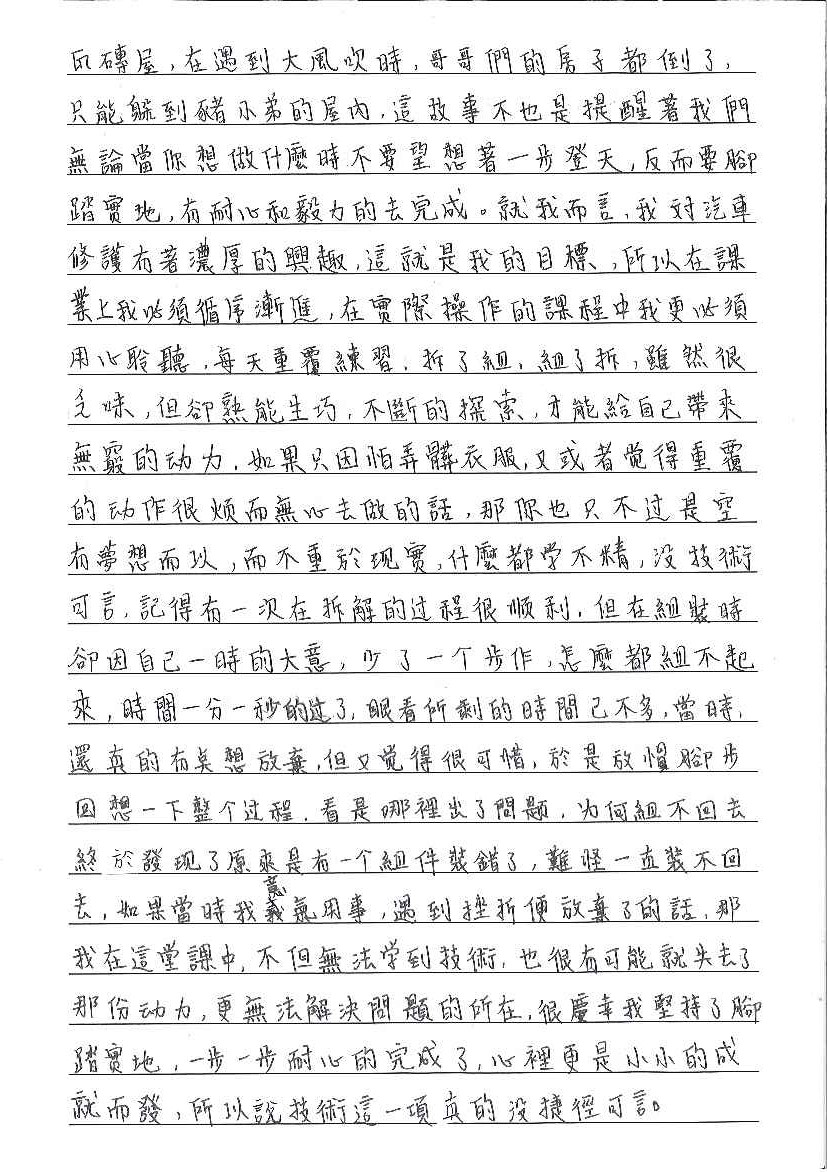 瓦磚屋，在遇到大風吹時，哥哥們的房子都倒了，
只能躲到豬小弟的屋內，這故事不也是提醒著我們
無論當你想做什麼時不要望想著一步登天，反而要腳
踏實地，有耐心和毅力的去完成。就我而言，我対汽車
修護有著濃厚的興趣，這就是我的目標，所以在課
業上我必須循序漸進，在實際操作的課程中我更必須
用心聆聽，每天重覆練習，拆了組，組了拆，雖然很
乏味，但卻熟能生巧，不斷的探索，才能給自己帶來
無窮的动力，如果只因怕弄髒衣服，又或者觉得重覆
的动作很烦而無心去做的話，那你也只不过是空
有夢想而以，而不重於现实，什麼都学不精，没技術
可言，記得有一次在拆解的过程很顺利，但在組裝時
卻因自己一時的大意，少了一个步作，怎麼都組不起
來，時間一分一秒的过了，眼看所剩的時間已不多，當時，
還真的有臭想放棄，但又觉得很可惜，於是放慣腳步
回想一下整个过程，看是哪裡出了問題，为何組不回去
終於發现了原來是有一个組件裝錯了，難怪一直裝不回
去，如果當時我意氣用事，遇到挫折便放棄了的話，那
我在這堂課中，不但無法学到技術，也很有可能就失去了
那份动力，更無法解決問題的所在，很慶幸我堅持了腳
踏實地，一步一步耐心的完成了，心裡更是小小的成
就而發，所以說技術這一項真的没捷徑可言。